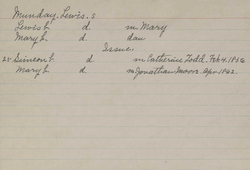 Munday, Lewis, s
Lewis b. d. m Mary
Mary b. d. dau
Issue
Simeon b. d. m Catherine Todd, Feb 4, 1846
Mary b. d. m Jonathan Moore, Apr 1862.